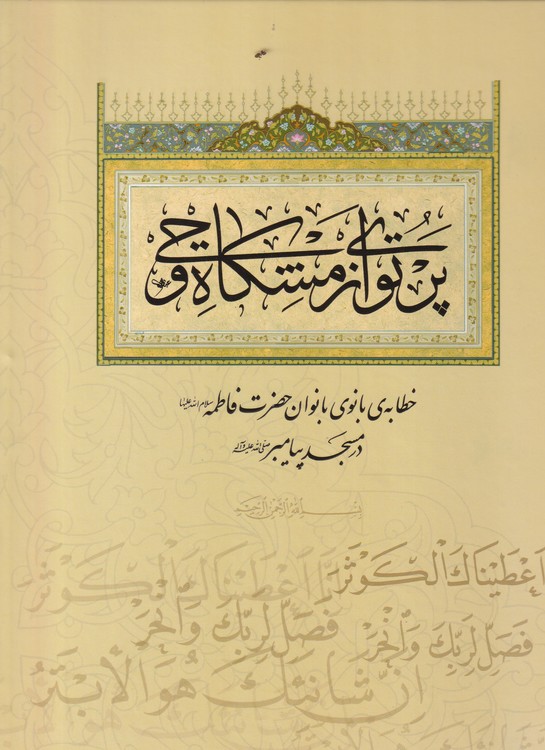 پرتوی از مشکاهِ وحی
خطابه‌ی بانوی بانوان حضرت فاطمه سلام الله علیها
در مسجد پیامبر صلی الله علیه و آله
بسم الله الرحمن الرحیم
اَعْطَیْناکَ الْکَوْثَرَ
اَعْطَیْناکَ الْکَوْثَرَ
فَصَلِّ لِرَبِّکَ وَانْحَرْ
فَصَلِّ لِرَبِّکَ وَانْحَرْ
اِنَّ شانِئَکَ هُوَ الْاَبْتَرُ